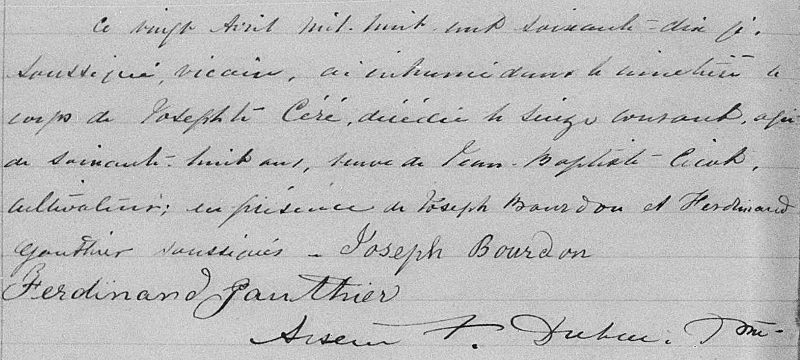 Ce vingt Avril mil-huit cent soixante-dix je,
soussigné, vicaire, ai inhumé dans le cimetière le
corps de Josephte Céré, décédée le seize courant, agée
de soixante-huit ans, veuve de Jean-Baptiste Cicot,
cultivateur; en présence de Joseph Bourdon et Ferdinand
Gauthier soussignés - Joseph Bourdon
Ferdinand Gauthier
Arsène V. Dubuc. Ptre